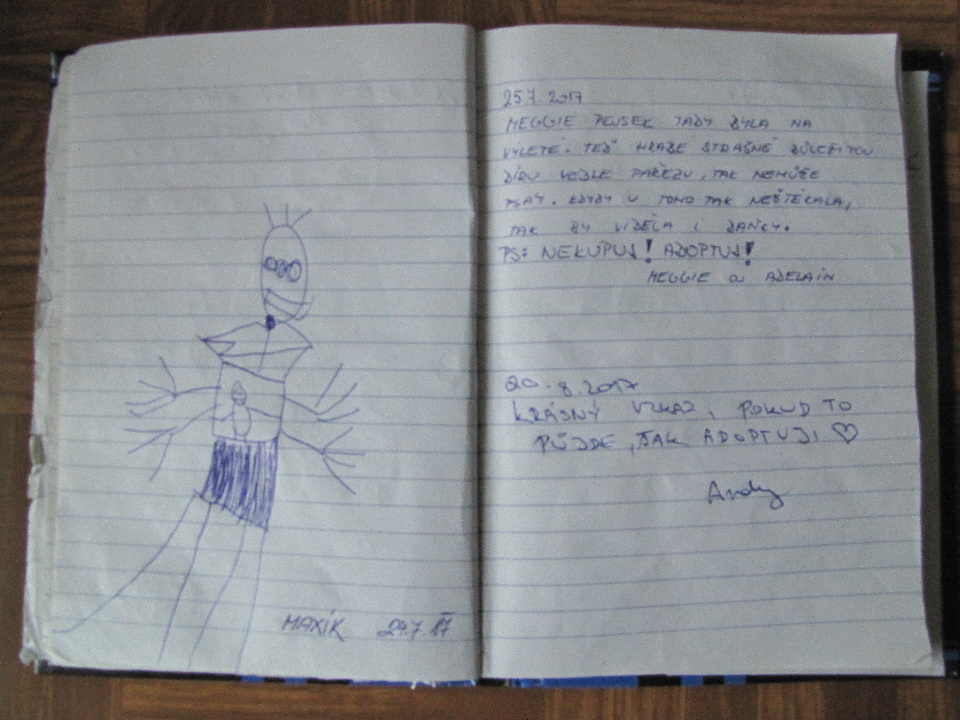 MAXÍK 24.7.17
25.7.2017
MEGGIE PEJSEK TADY BYLA NA
VÝLETĚ. TEĎ HRABE STRAŠNĚ DŮLEŽITOU
DÍRU VEDLE PAŘEZU, TAK NEMŮŽE
PSÁT. KDYBY U TOHO TAK NEŠTĚKALA,
TAK BY VIDĚLA I DAŇKY.
PS: NEKUPUJ! ADOPTUJ!
MEGGIE a ADELAIN
20.8.2017
KRÁSNÝ VZKAZ, POKUD TO
PŮJDE, TAK ADOPTUJI ♡
Andy